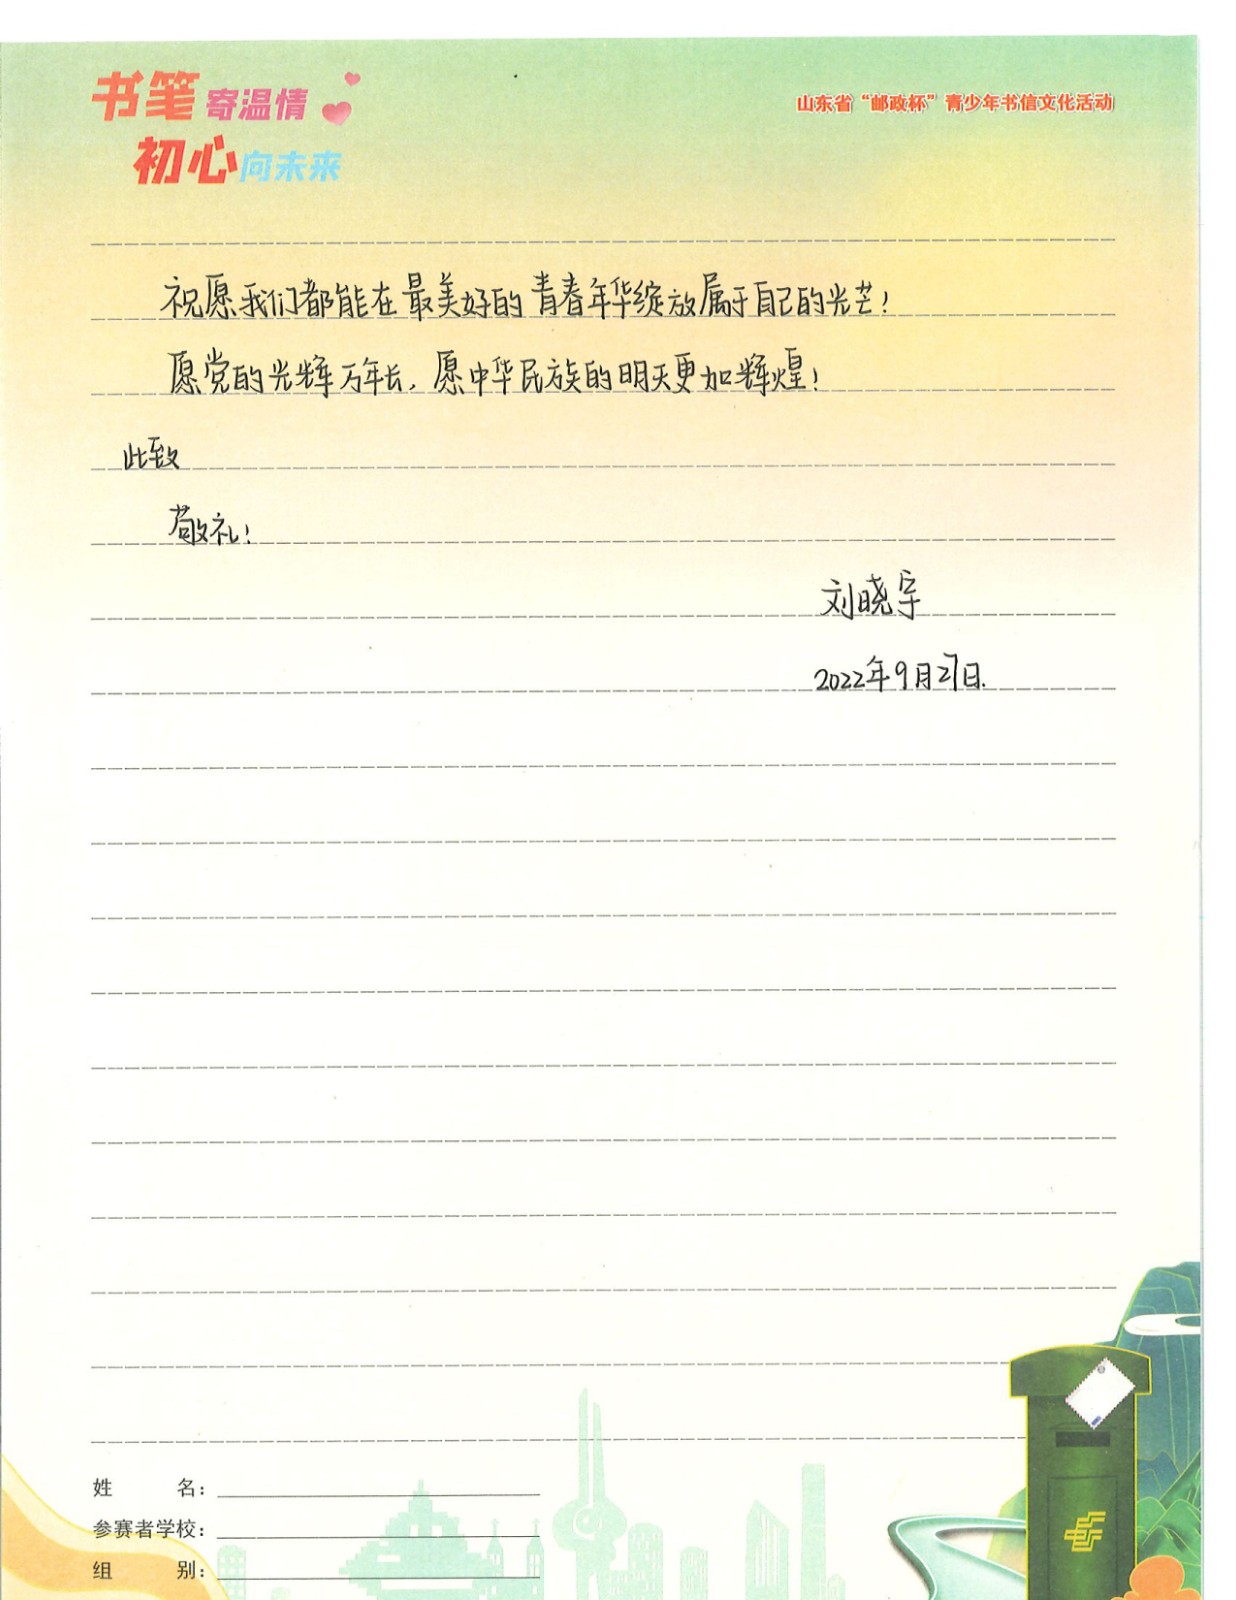 书笔寄温情
初心向未来
山东省“邮政杯”青少年书信文化活动
祝愿我们都能在最美好的青春年华绽放属于自己的光芒！
愿党的光辉万年长，愿中华民族的明天更加辉煌！
此致
敬礼！
刘晓宇
2022年9月27日.
姓 名：
参赛者学校：
组 别：